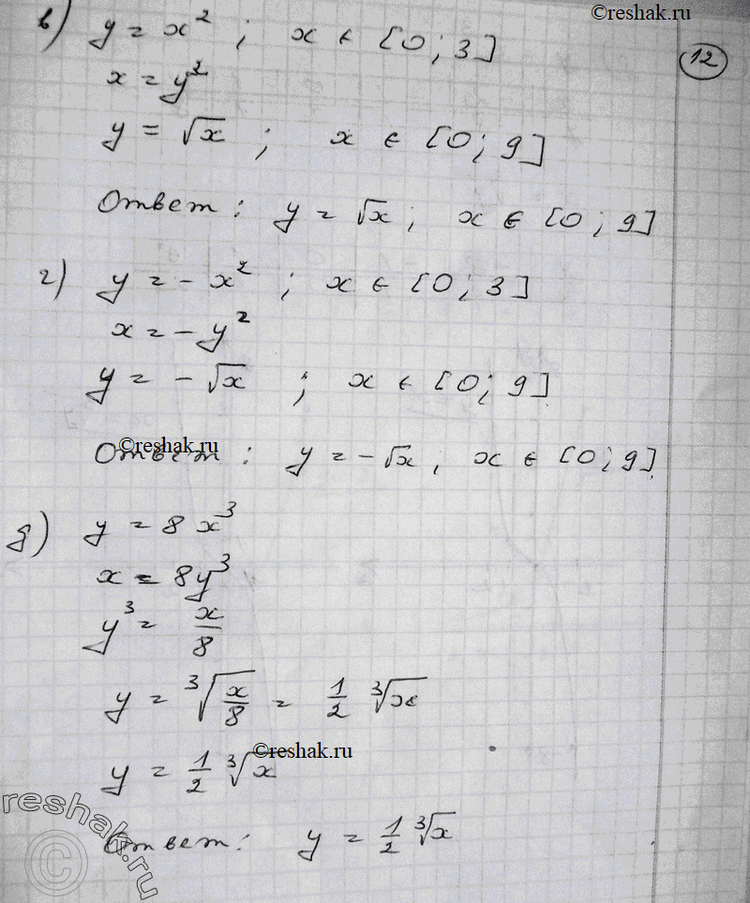 ©reshak.ru
12
в) y = x² ; x ∈ [0; 3]
x = y²
y = √x ; x ∈ [0; 9]
Ответ: y = √x ; x ∈ [0; 9]
г) y = -x² ; x ∈ [0; 3]
x = -y²
y = -√x ; x ∈ [0; 9]
©reshak.ru
Ответ: y = -√x, x ∈ [0; 9]
д) y = 8x³
x = 8y³
y³ = x/8
y = ∛(x/8) = 1/2 ∛x
©reshak.ru
y = 1/2 ∛x
Ответ: y = 1/2 ∛x
reshak.ru
©